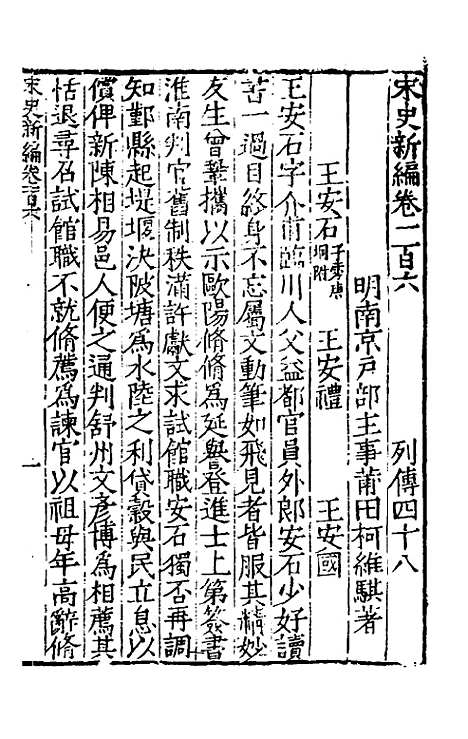 宋史新編卷一百六　列傳四十八
明南京戶部主事莆田柯維騏著
王安石子雱唐坰附　王安禮　王安國
王安石字介甫臨川人父益都官員外郎安石少好讀
書一過目終身不忘屬文動筆如飛見者皆服其精妙
友生曾鞏攜以示歐陽脩脩爲延與擢進士上第簽書
淮南判官舊制秩滿許獻文求試館職安石獨否再調
知鄞縣起堤堰決陂塘爲水陸之利貸穀與民立息以
償俾新陳相易邑人便之通判舒州文彥博爲相薦其
恬退尋召試館職不就脩薦爲諫官以祖母年高辭脩
宋史新編卷一百六　一